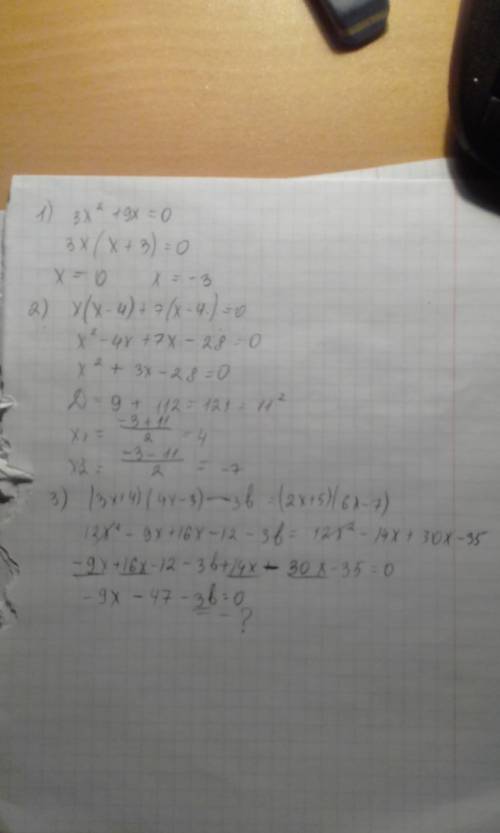 1) 3x² + 9x = 0
3x(x + 3) = 0
x = 0 x = -3
2) x(x-4) + 7(x-4) = 0
x² - 4x + 7x - 28 = 0
x² + 3x - 28 = 0
D = 9 + 112 = 121 = 11²
x1 = (-3+11)/2 = 4
x2 = (-3-11)/2 = -7
3) (3x+4)(4x-3) - 3b = (2x+5)(6x-7)
12x² - 9x + 16x - 12 - 3b = 12x² - 14x + 30x - 35
-9x + 16x - 12 - 3b + 14x - 30x - 35 = 0
-9x - 47 - 3b = 0
- ?